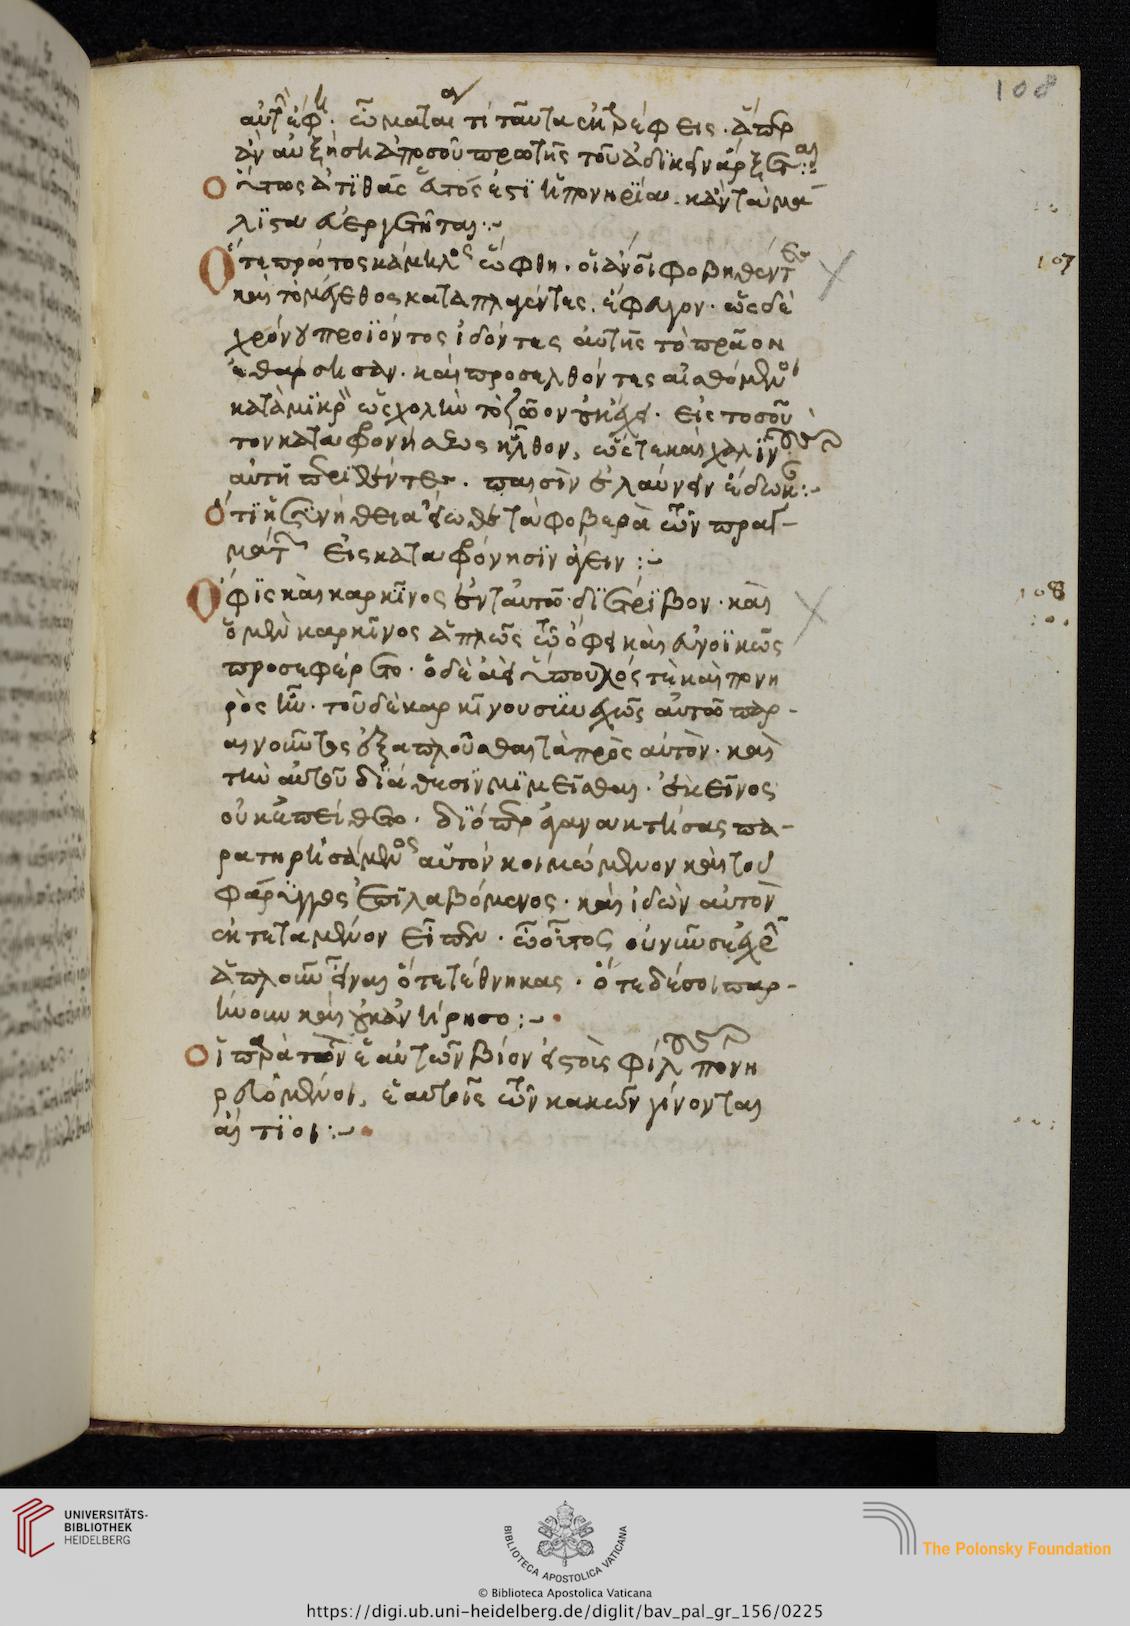 108
αὐτῶ ἔφη· ὦ μάταιε τί ταῦτα ἐκτρέφεις· ἅπερ
ἂν αὐξήση ἀπὸ σοῦ πρώτης τοῦ ἀδικεῖν ἄρξεται:
Οὕτως ἀτίθασός ἐστιν ἡ πονηρία κἂν τὰ μά
λιστα εὐεργετῆται:
107
Ὅτε πρῶτος κάμηλος ὤφθη· οἱ ἄνοι φοβηθέντες
καὶ τὸ μέγεθος καταπλαγέντες, ἔφυγον· ὡς δὲ
χρόνου προϊόντος ἰδόντες αὐτῆς τὸ πρᾶον
ἐθάρσησαν· καὶ προσελθόντες αἰσθόμενοι
κατὰ μικρὸν ὡς χολὴν τὸ ζῶον οὐκ ἔχει· εἰς τοσοῦ
τον καταφρονήσεως ἦλθον, ὥστε καὶ χαλινὸν
αὐτῆ περιθέντες· παισὶν ἐλαύνειν ἔδωκαν:
Ὅτι ἡ συνήθεια εἴωθε τὰ φοβερὰ τῶν πραγ-
μάτων εἰς καταφρόνησιν ἄγειν:
108
Ὄφις καὶ καρκῖνος ἐν ταὐτῶ διέτριβον· καὶ
ὁ μὲν καρκῖνος ἁπλῶς τῶ ὄφει καὶ εὐνοϊκῶς
προσεφέρετο· ὁ δὲ ἀεὶ ὕπουλός τε καὶ πονη
ρὸς ἦν· τοῦ δὲ καρκίνου συνεχῶς αὐτῶ παρ-
αινοῦντος ἐξαπλοῦσθαι τὰ πρὸς αὐτὸν· καὶ
τὴν αὐτοῦ διάθεσιν μιμεῖσθαι· ἐκεῖνος
οὐκ ἐπείθετο· διόπερ ἀγανακτήσας πα-
ρατηρησάμενος αὐτὸν κοιμώμενον καὶ τοῦ
φάρυγγος ἐπιλαβόμενος· καὶ ἰδὼν αὐτὸν
ἐκτεταμένον εἶπεν· ὦ οὗτος οὐ νῦν σε ἐχρῆν
ἁπλοῦν εἶναι ὅτε τέθνηκας· ὅτε δέ σοι παρ-
ήνουν καὶ οὐκ ἂν ἤρησο:
Οἱ παρὰ τὸν ἑαυτῶν βίον εἰς τοὺς φίλους πονη
ρευόμενοι, ἑαυτοῖς τῶν κακῶν γίνονται
αἴτιοι:
UNIVERSITÄTS-
BIBLIOTHEK
HEIDELBERG
BIBLIOTECA APOSTOLICA VATICANA
The Polonsky Foundation
© Biblioteca Apostolica Vaticana
https://digi.ub.uni-heidelberg.de/diglit/bav_pal_gr_156/0225